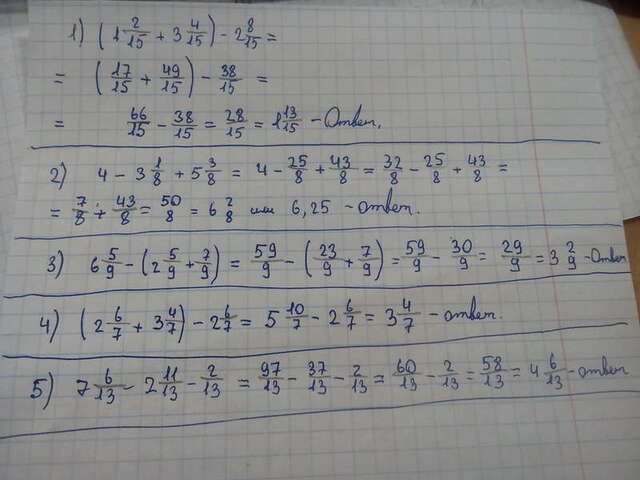 1) (1 2/15 + 3 4/15) - 2 8/15 =
= (17/15 + 49/15) - 38/15 =
= 66/15 - 38/15 = 28/15 = 1 13/15 - Ответ.
2) 4 - 3 1/8 + 5 3/8 = 4 - 25/8 + 43/8 = 32/8 - 25/8 + 43/8 =
= 7/8 + 43/8 = 50/8 = 6 2/8 или 6,25 - ответ.
3) 6 5/9 - (2 5/9 + 7/9) = 59/9 - (23/9 + 7/9) = 59/9 - 30/9 = 29/9 = 3 2/9 - Ответ
4) (2 6/7 + 3 4/7) - 2 6/7 = 5 10/7 - 2 6/7 = 3 4/7 - ответ.
5) 7 6/13 - 2 11/13 - 2/13 = 97/13 - 37/13 - 2/13 = 60/13 - 2/13 = 58/13 = 4 6/13 - ответ